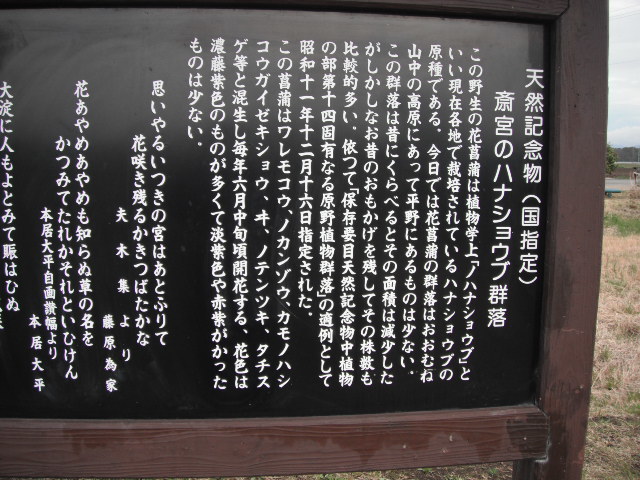 天然記念物（国指定）
斎宮のハナショウブ群落
この野生の花菖蒲は植物学上「ノハナショウブ」と
いい現在各地で栽培されているハナショウブの
原種である。今日では花菖蒲の群落はおおむね
山中の高原にあって平野にあるものは少ない。
この群落は昔にくらべるとその面積は減少した
がしかしなお昔のおもかげを残してその株数も
比較的多い。依つて「保存要目天然記念物中植物
の部第十四固有なる原野植物群落」の適例として
昭和十一年十二月十六日指定された。
この菖蒲はワレモコウ、ノカンゾウ、カモノハシ
コウガイゼキショウ、ヰ、ノテンツキ、タチス
ゲ等と混生し毎年六月中旬頃開花する、花色は
濃藤紫色のものが多くて淡紫色や赤紫がかった
ものは少ない。
思いやるいつきの宮はあとふりて
花咲き残るかきつばたかな
夫木集より
藤原為家
花あやめあやめも知らぬ草の名を
かつみてたれかそれといひけん
本居大平自画讃幅より
本居大平
大淀に人もよとみて賑はひぬ